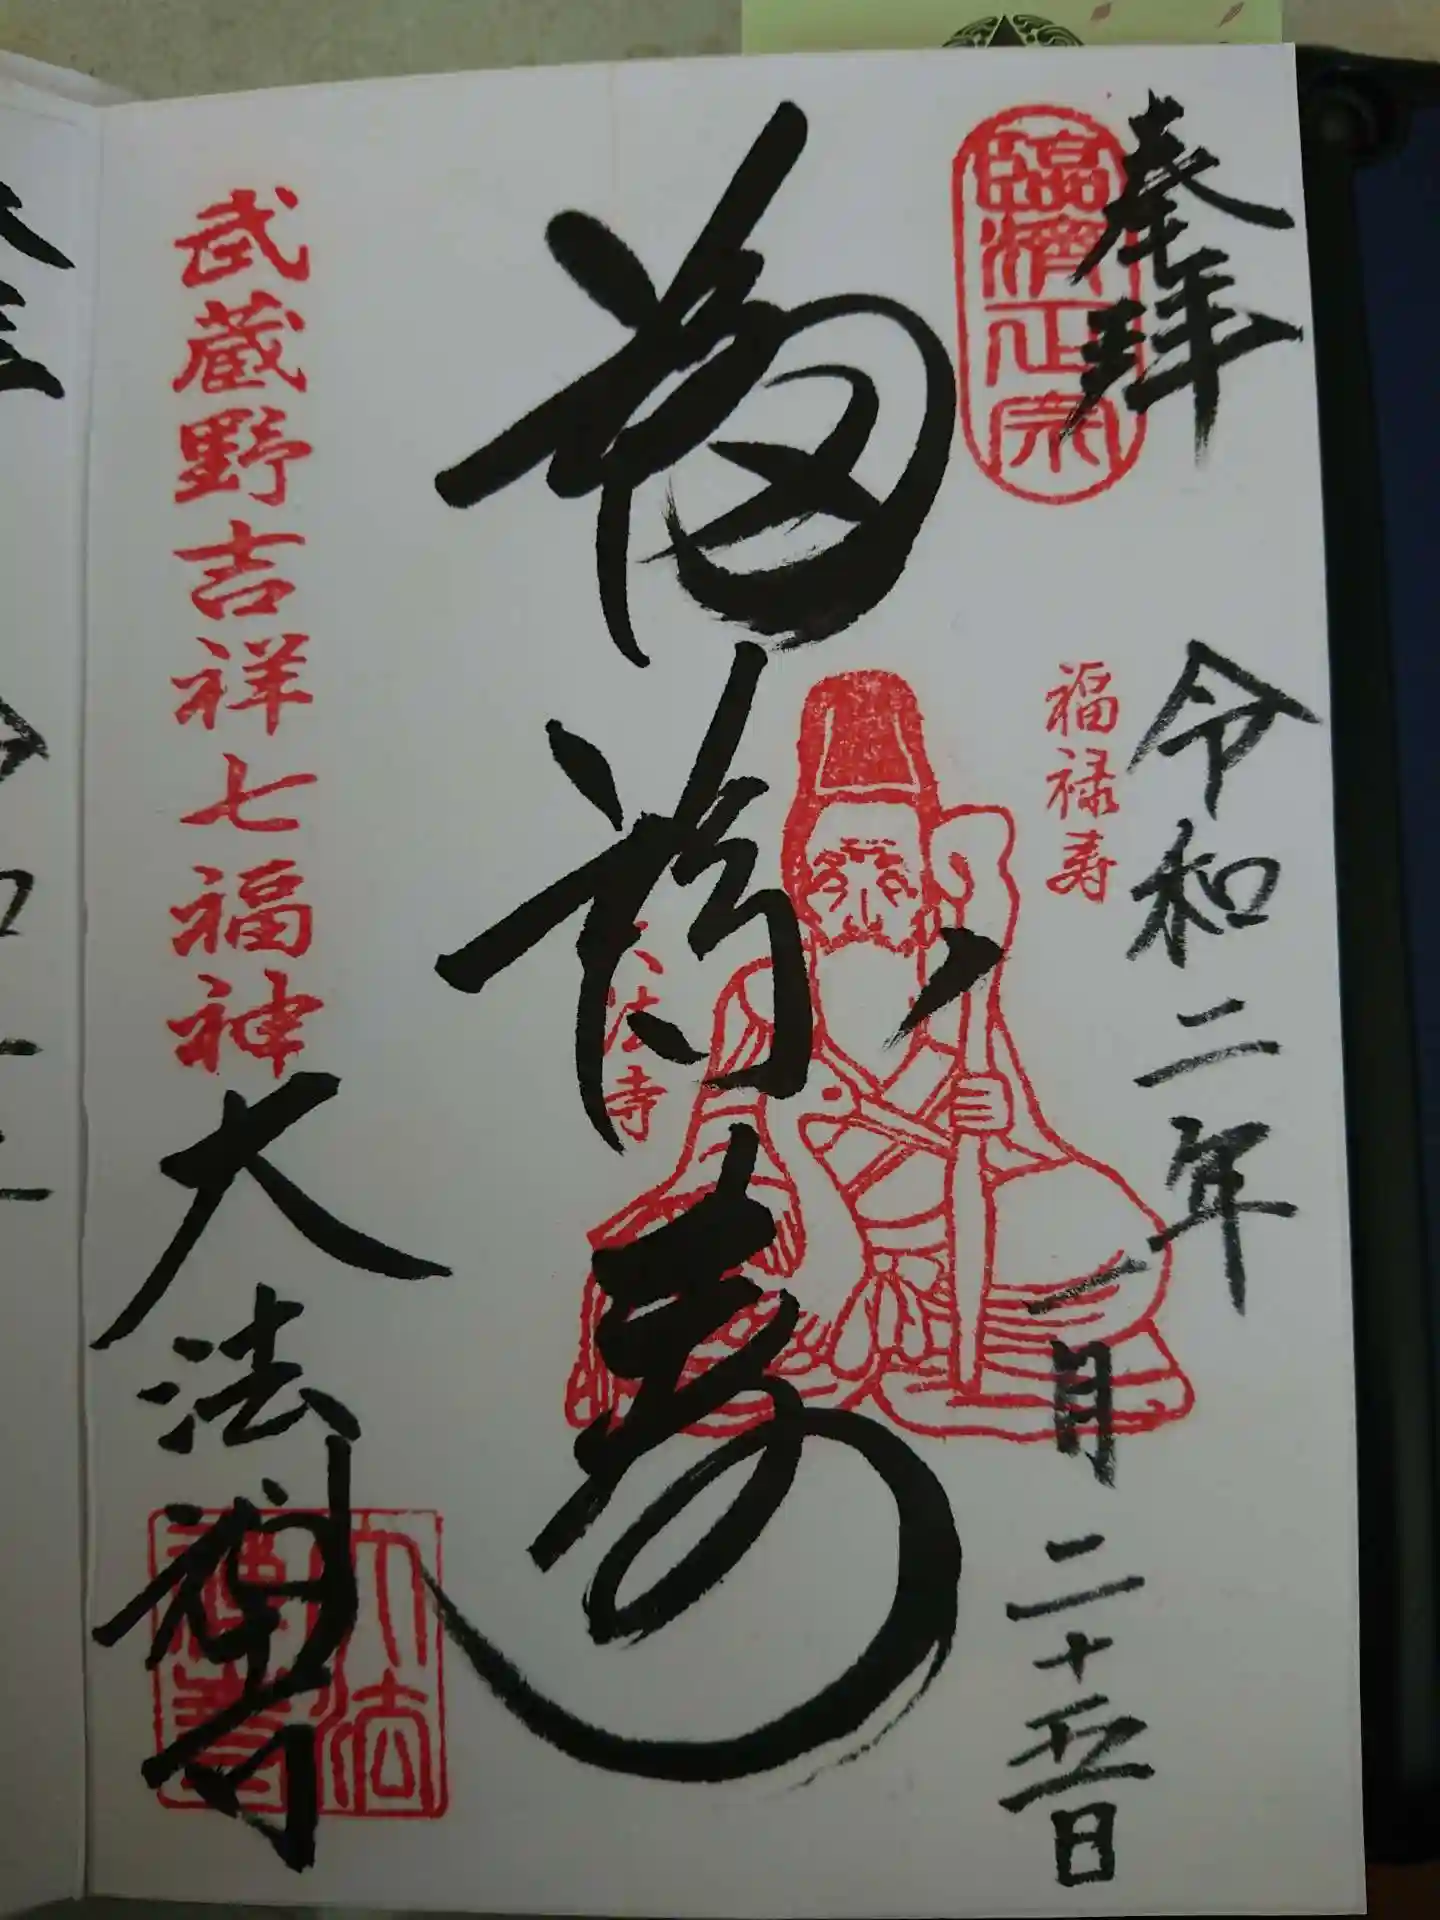 奉拝
臨済正宗
令和二年一月二十五日
福禄寿
福禄寿
大法寺
武蔵野吉祥七福神
大法禅寺
大法
禅寺